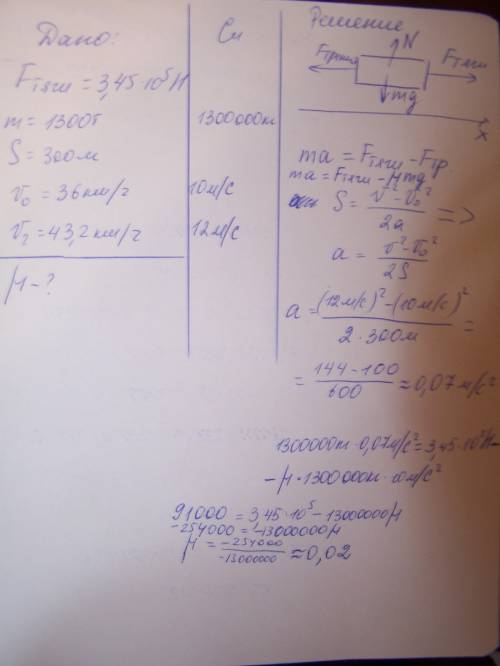 Дано:
Fтяги = 3,45·10⁵Н
m = 1300т
S = 300м
v₀ = 36км/ч
v₂ = 43,2км/ч
μ-?
Си
1300000кг
10м/с
12м/с
Решение
N
Fтяги
mg
x
ma = Fтяги - Fтр.
ma = Fтяги - μmg
S = v²-v₀² / 2a =>
a = v²-v₀² / 2S
a = (12м/с)²-(10м/с)² / 2·300м =
= 144-100 / 600 ≈ 0,07м/с²
1300000кг·0,07м/с² = 3,45·10⁵Н-
-μ·1300000кг·10м/с²
91000 = 3,45·10⁵-13000000μ
-254000 = -13000000μ
μ = -254000 / -1300000 ≈ 0,02